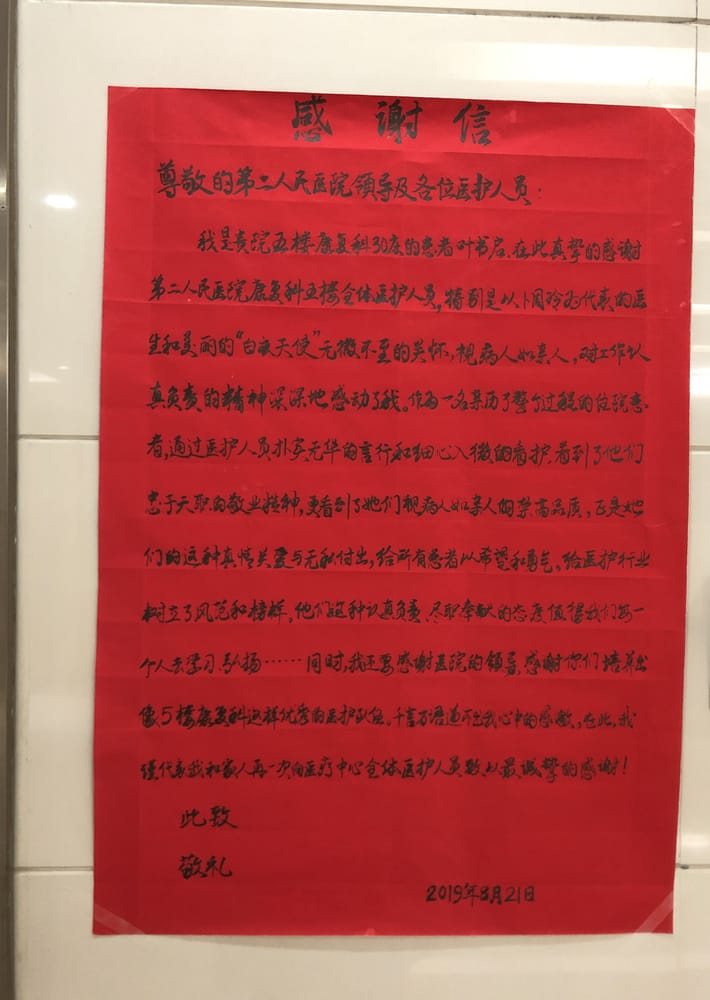 感谢信
尊敬的第二人民医院领导及各位医护人员：
我是贵院五楼康复科30床的患者叶书启.在此真挚的感谢
第二人民医院康复科五楼全体医护人员,特别是以卜同玲为代表的医
生和美丽的“白衣天使”无微不至的关怀，视病人如亲人，对工作认
真负责的精神深深地感动了我。作为一名亲历了整个过程的住院患
者,通过医护人员朴实无华的言行和细心入微的看护.看到了他们
忠于天职的敬业精神，更看到了她们视病人如亲人的崇高品质，正是她
们的这种真情关爱与无私付出，给所有患者以希望和勇气。给医护行业
树立了风范和榜样。他们这种认真负责.尽职奉献的态度值得我们每一
个人去学习.弘扬……同时,我还要感谢医院的领导.感谢你们培养出
像5楼康复科这样优秀的医护队伍。千言万语道不出我心中的感激,在此,我
谨代表我和家人再一次向医疗中心全体医护人员致以最诚挚的感谢！
此致
敬礼
2019年8月21日